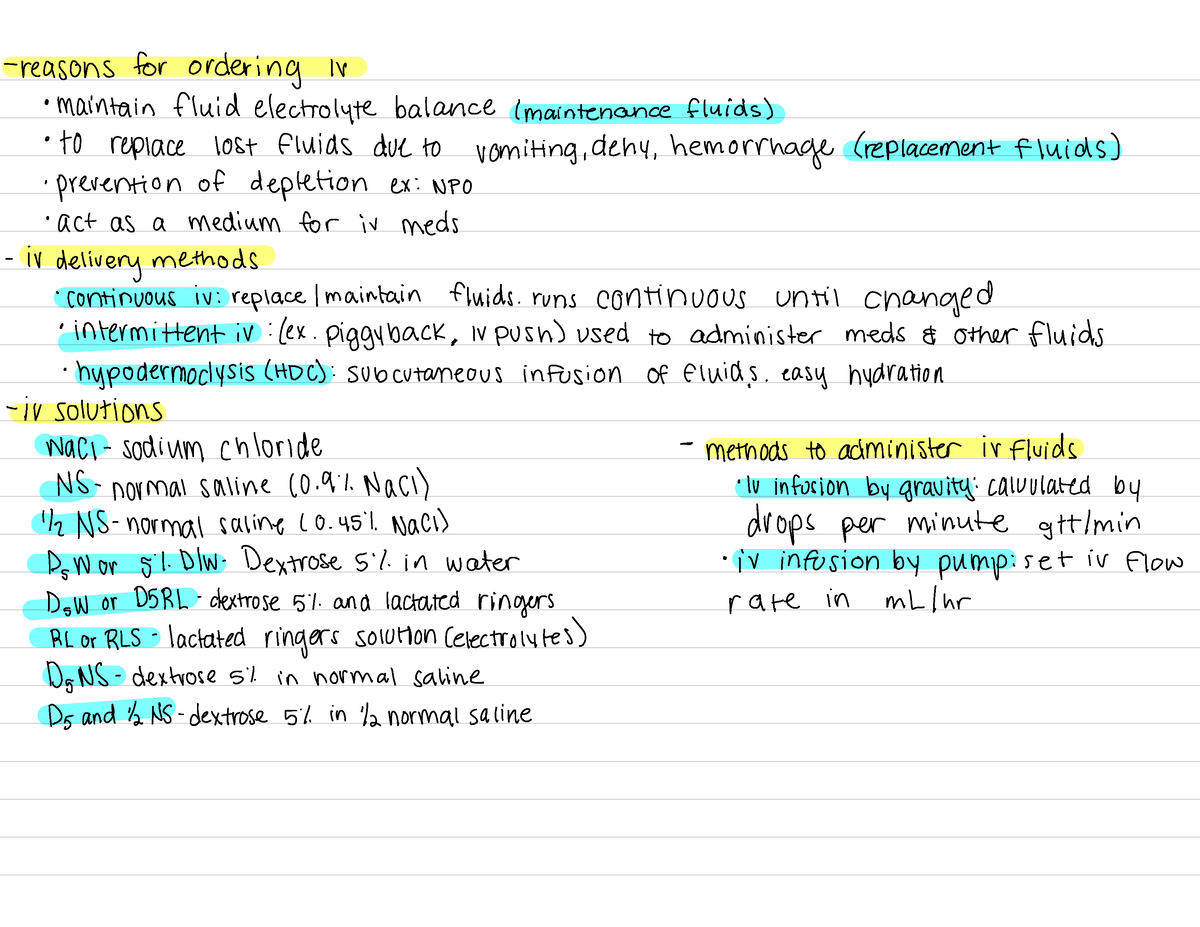 -reasons for ordering iv
• maintain fluid electrolyte balance (maintenance fluids)
• to replace lost fluids due to vomiting, dehy, hemorrhage (replacement fluids)
• prevention of depletion ex: NPO
• act as a medium for iv meds
- iv delivery methods
• continuous iv: replace | maintain fluids. runs continuous until changed
• intermittent iv: (ex. piggyback, iv push) used to administer meds & other fluids
• hypodermoclysis (HDC): subcutaneous infusion of fluids. easy hydration
-iv solutions
NaCl - sodium chloride
NS - normal saline (0.9% NaCl)
1/2 NS - normal saline (0.45% NaCl)
D5W or 5% D/W - Dextrose 5% in water
D5W or D5RL - dextrose 5% and lactated ringers
RL or RLS - lactated ringers solution (electrolytes)
D5NS - dextrose 5% in normal saline
D5 and 1/2 NS - dextrose 5% in 1/2 normal saline
- methods to administer iv fluids
• iv infusion by gravity: calculated by
drops per minute gtt/min
• iv infusion by pump: set iv flow
rate in mL/hr